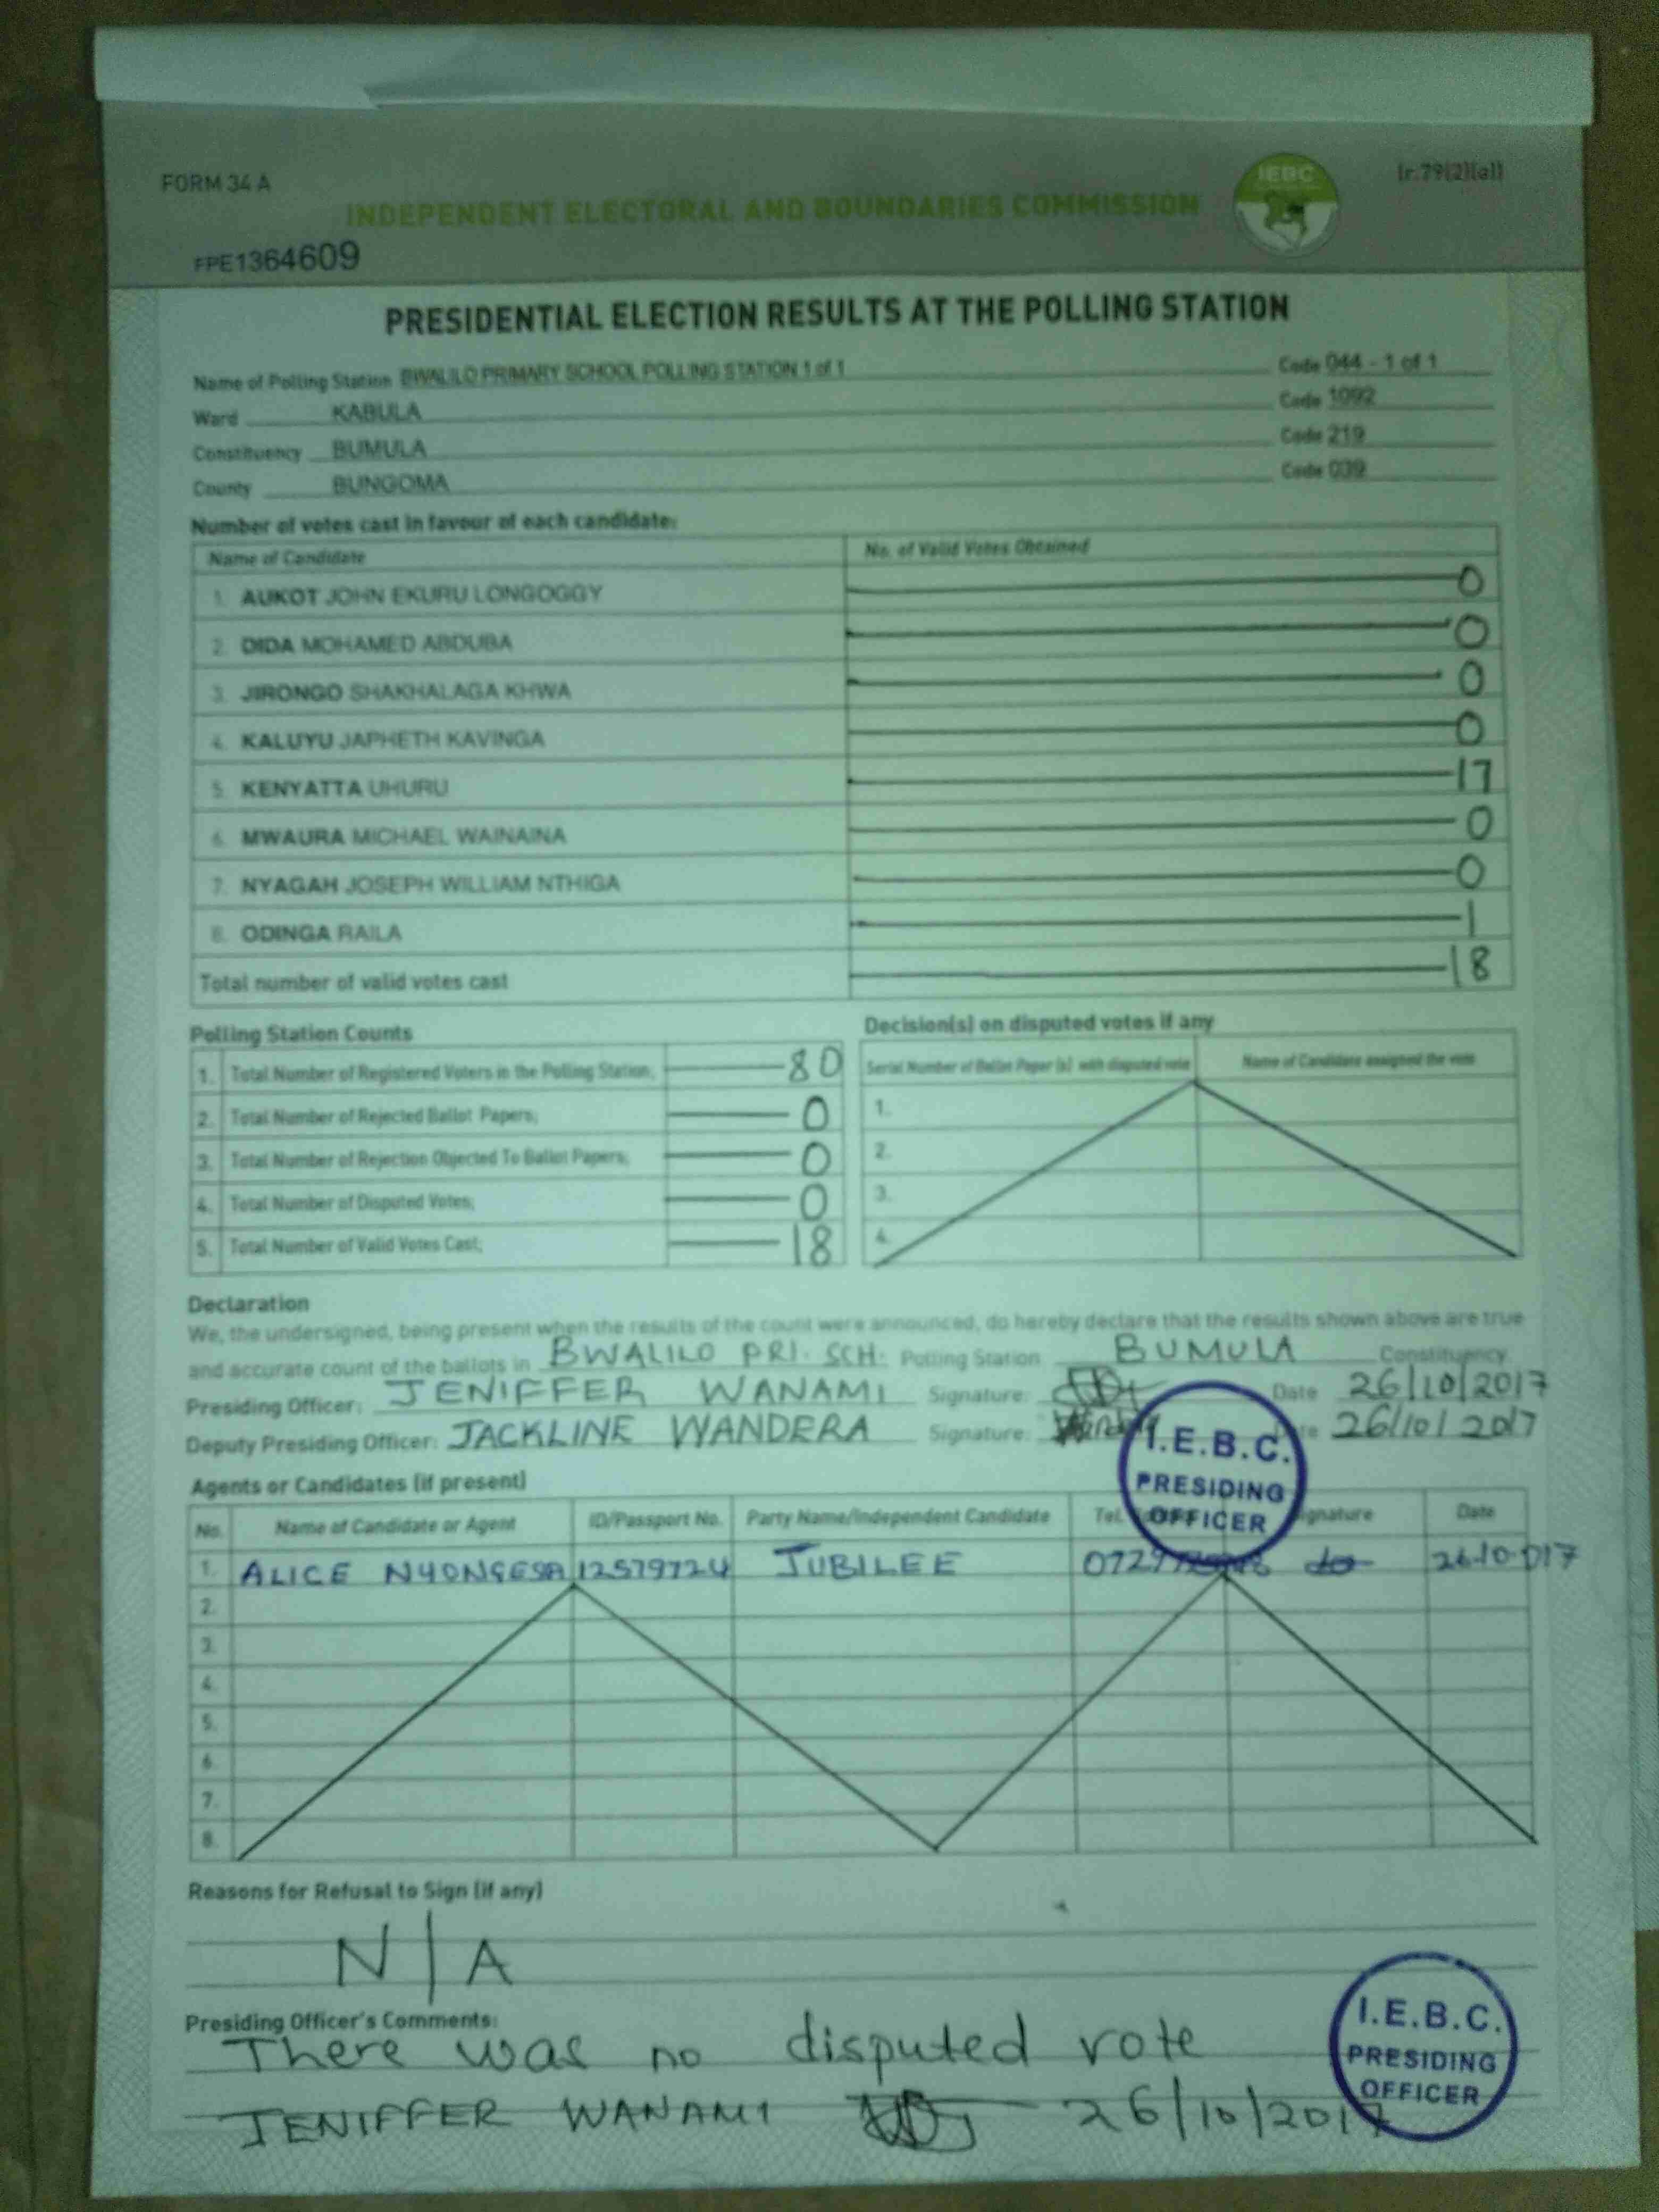 FORM 34 A
(r.79(2)(a))
IEBC
INDEPENDENT ELECTORAL AND BOUNDARIES COMMISSION
FPE1364609
PRESIDENTIAL ELECTION RESULTS AT THE POLLING STATION
Name of Polling Station BWALILO PRIMARY SCHOOL POLLING STATION 1 of 1 Code 044 - 1 of 1
Ward KABULA Code 1092
Constituency BUMULA Code 219
County BUNGOMA Code 039
Number of votes cast in favour of each candidate:
Name of Candidate No. of Valid Votes Obtained
1. AUKOT JOHN EKURU LONGOGGY 0
2. DIDA MOHAMED ABDUBA 0
3. JIRONGO SHAKHALAGA KHWA 0
4. KALUYU JAPHETH KAVINGA 0
5. KENYATTA UHURU 17
6. MWAURA MICHAEL WAINAINA 0
7. NYAGAH JOSEPH WILLIAM NTHIGA 0
8. ODINGA RAILA 1
Total number of valid votes cast 18
Polling Station Counts
1. Total Number of Registered Voters in the Polling Station; 80
2. Total Number of Rejected Ballot Papers; 0
3. Total Number of Rejection Objected To Ballot Papers; 0
4. Total Number of Disputed Votes; 0
5. Total Number of Valid Votes Cast; 18
Decision(s) on disputed votes if any
Serial Number of Ballot Paper (s) with disputed vote Name of Candidate assigned the vote
1.
2.
3.
4.
Declaration
We, the undersigned, being present when the results of the count were announced, do hereby declare that the results shown above are true
and accurate count of the ballots in BWALILO PRI. SCH. Polling Station BUMULA Constituency
Presiding Officer: JENIFFER WANAMI Signature: Date 26/10/2017
Deputy Presiding Officer: JACKLINE WANDERA Signature: 26/10/2017
I.E.B.C.
PRESIDING
OFFICER
Agents or Candidates (if present)
No. Name of Candidate or Agent ID/Passport No. Party Name/Independent Candidate Tel. Signature Date
1. ALICE NYONGESA 12579724 JUBILEE 26.10.017
2.
3.
4.
5.
6.
7.
8.
Reasons for Refusal to Sign (if any)
N/A
Presiding Officer's Comments:
There was no disputed vote
JENIFFER WANAMI 26/10/2017
I.E.B.C.
PRESIDING
OFFICER